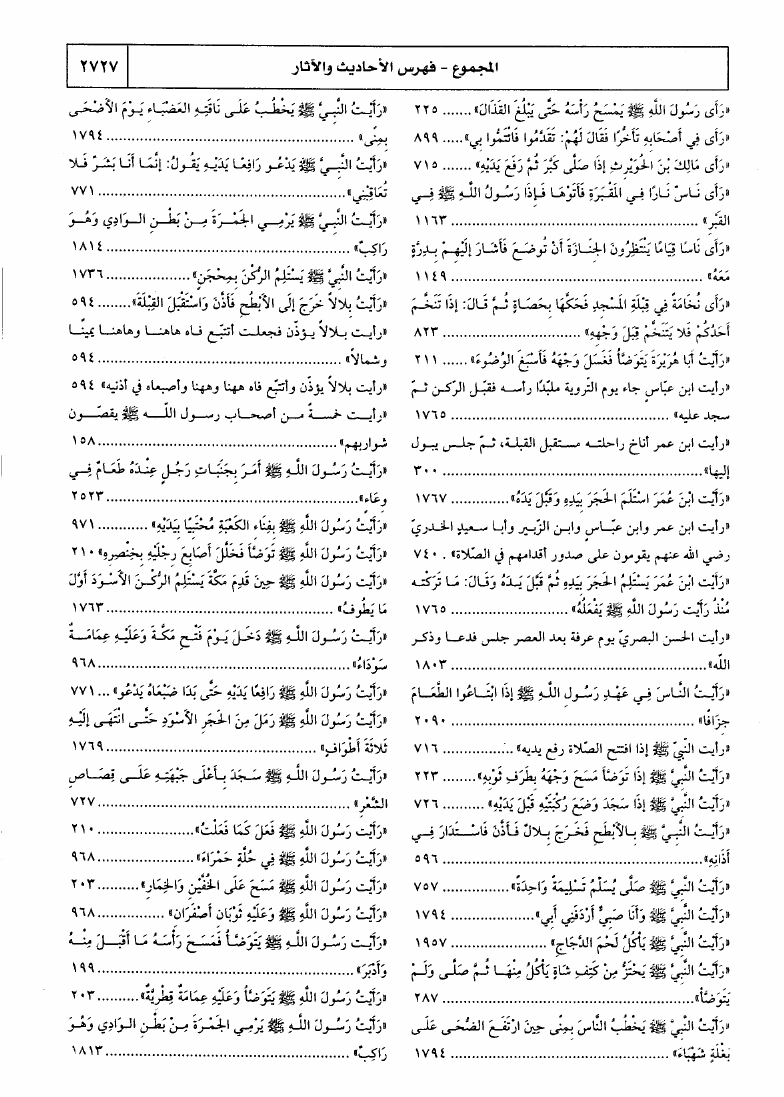 المجموع - فهرس الأحاديث والآثار
٢٧٢٧
«رَأَى رَسُولَ اللَّهِ ﷺ يَمْسَحُ رَأْسَهُ حَتَّى يَبْلُغَ القَذَالَ» ....... ٢٢٥
«رَأَى فِي أَصْحَابِهِ تَأَخُّرًا فَقَالَ لَهُمْ: تَقَدَّمُوا فَائْتَمُّوا بِي» ..... ٨٩٩
«رَأَى مَالِكَ بْنَ الحُوَيْرِثِ إِذَا صَلَّى كَبَّرَ ثُمَّ رَفَعَ يَدَيْهِ» ....... ٧١٥
«رَأَى نَاسٌ نَارًا فِي المَقْبَرَةِ فَأَتَوْهَا فَإِذَا رَسُولُ اللَّهِ ﷺ فِي
القَبْرِ» ....... ١١٦٣
«رَأَى نَاسًا قِيَامًا يَنْتَظِرُونَ الجَنَازَةَ أَنْ تُوضَعَ فَأَشَارَ إِلَيْهِمْ بِدِرَّةٍ
مَعَهُ» ....... ١١٤٩
«رَأَى نُخَامَةً فِي قِبْلَةِ المَسْجِدِ فَحَكَّهَا بِحَصَاةٍ ثُمَّ قَالَ: إِذَا تَنَخَّمَ
أَحَدُكُمْ فَلَا يَتَنَخَّمْ قِبَلَ وَجْهِهِ» ....... ٨٢٣
«رَأَيْتُ أَبَا هُرَيْرَةَ يَتَوَضَّأُ فَغَسَلَ وَجْهَهُ فَأَسْبَغَ الوُضُوءَ» ...... ٢١١
«رأيت ابن عبّاس جاء يوم التّروية ملبّدًا رأسه فقبّل الركن ثمّ
سجد عليه» ....... ١٧٦٥
«رأيت ابن عمر أناخ راحلته مستقبل القبلة، ثمّ جلس يبول
إليها» ....... ٣٠٠
«رَأَيْتُ ابْنَ عُمَرَ اسْتَلَمَ الحَجَرَ بِيَدِهِ وَقَبَّلَ يَدَهُ» ....... ١٧٦٧
«رأيت ابن عمر وابن عبّاس وابن الزّبير وأبا سعيدٍ الخدريّ
رضي الله عنهم يقومون على صدور أقدامهم في الصّلاة» . ٧٤٠
«رَأَيْتُ ابْنَ عُمَرَ يَسْتَلِمُ الحَجَرَ بِيَدِهِ ثُمَّ قَبَّلَ يَدَهُ وَقَالَ: مَا تَرَكْتُه
مُنْذُ رَأَيْت رَسُولَ اللَّهِ ﷺ يَفْعَلُهُ» ....... ١٧٦٥
«رأيت الحسن البصريّ يوم عرفة بعد العصر جلس فدعا وذكر
اللّه» ....... ١٨٠٣
«رَأَيْتُ النَّاسَ فِي عَهْدِ رَسُولِ اللَّهِ ﷺ إِذَا ابْتَاعُوا الطَّعَامَ
جِزَافًا» ....... ٢٠٩٠
«رأيت النّبيّ ﷺ إذا افتتح الصّلاة رفع يديه» ....... ٧١٦
«رَأَيْتُ النَّبِيَّ ﷺ إِذَا تَوَضَّأَ مَسَحَ وَجْهَهُ بِطَرَفِ ثَوْبِهِ» ........ ٢٢٣
«رَأَيْتُ النَّبِيَّ ﷺ إِذَا سَجَدَ وَضَعَ رُكْبَتَيْهِ قَبْلَ يَدَيْهِ» .......... ٧٢٦
«رَأَيْتُ النَّبِيَّ ﷺ بِالأَبْطَحِ فَخَرَجَ بِلَالٌ فَأَذَّنَ فَاسْتَدَارَ فِي
أَذَانِهِ» ....... ٥٩٦
«رَأَيْتُ النَّبِيَّ ﷺ صَلَّى يُسَلِّمُ تَسْلِيمَةً وَاحِدَةً» ....... ٧٥٧
«رَأَيْتُ النَّبِيَّ ﷺ وَأَنَا صَبِيٌّ أَرْدَفَنِي أَبِي» ....... ١٧٩٤
«رَأَيْتُ النَّبِيَّ ﷺ يَأْكُلُ لَحْمَ الدَّجَاجِ» ....... ١٩٥٧
«رَأَيْتُ النَّبِيَّ ﷺ يَحْتَزُّ مِنْ كَتِفِ شَاةٍ يَأْكُلُ مِنْهَا ثُمَّ صَلَّى وَلَمْ
يَتَوَضَّأْ» ....... ٢٨٧
«رَأَيْتُ النَّبِيَّ ﷺ يَخْطُبُ النَّاسَ بِمِنًى حِينَ ارْتَفَعَ الضُّحَى عَلَى
بَغْلَةٍ شَهْبَاءَ» ....... ١٧٩٤
«رَأَيْتُ النَّبِيَّ ﷺ يَخْطُبُ عَلَى نَاقَتِهِ العَضْبَاءِ يَوْمَ الأَضْحَى
بِمِنًى» ....... ١٧٩٤
«رَأَيْتُ النَّبِيَّ ﷺ يَدْعُو رَافِعًا يَدَيْهِ يَقُولُ: إِنَّمَا أَنَا بَشَرٌ فَلَا
تُعَاقِبْنِي» ....... ٧٧١
«رَأَيْتُ النَّبِيَّ ﷺ يَرْمِي الجَمْرَةَ مِنْ بَطْنِ الوَادِي وَهُوَ
رَاكِبٌ» ....... ١٨١٤
«رَأَيْتُ النَّبِيَّ ﷺ يَسْتَلِمُ الرُّكْنَ بِمِحْجَنٍ» ....... ١٧٣٦
«رَأَيْتُ بِلَالاً خَرَجَ إِلَى الأَبْطَحِ فَأَذَّنَ وَاسْتَقْبَلَ القِبْلَةَ» ........ ٥٩٤
«رأيت بلالاً يؤذّن فجعلت أتتبّع فاه هاهنا وهاهنا يمينًا
وشمالاً» ....... ٥٩٤
«رأيت بلالاً يؤذّن وأتتبّع فاه ههنا وههنا وأصبعاه في أذنيه» ٥٩٤
«رأيت خمسةً من أصحاب رسول اللّه ﷺ يقصّون
شواربهم» ....... ١٥٨
«رَأَيْتُ رَسُولَ اللَّهِ ﷺ أَمَرَ بِجَنَبَاتِ رَجُلٍ عِنْدَهُ طَعَامٌ فِي
وِعَاءٍ» ....... ٢٥٢٣
«رَأَيْتُ رَسُولَ اللَّهِ ﷺ بِفِنَاءِ الكَعْبَةِ مُحْتَبِيًا بِيَدَيْهِ» ............ ٩٧١
«رَأَيْتُ رَسُولَ اللَّهِ ﷺ تَوَضَّأَ فَخَلَّلَ أَصَابِعَ رِجْلَيْهِ بِخِنْصِرِهِ» ٢١٠
«رَأَيْت رَسُولَ اللَّهِ ﷺ حِينَ قَدِمَ مَكَّةَ يَسْتَلِمُ الرُّكْنَ الأَسْوَدَ أَوَّلَ
مَا يَطُوفُ» ....... ١٧٦٣
«رَأَيْتُ رَسُولَ اللَّهِ ﷺ دَخَلَ يَوْمَ فَتْحِ مَكَّةَ وَعَلَيْهِ عِمَامَةٌ
سَوْدَاءُ» ....... ٩٦٨
«رَأَيْتُ رَسُولَ اللَّهِ ﷺ رَافِعًا يَدَيْهِ حَتَّى بَدَا ضَبْعَاهُ يَدْعُو» ... ٧٧١
«رَأَيْتُ رَسُولَ اللَّهِ ﷺ رَمَلَ مِنَ الحَجَرِ الأَسْوَدِ حَتَّى انْتَهَى إِلَيْهِ
ثَلَاثَةَ أَطْوَافٍ» ....... ١٧٦٩
«رَأَيْتُ رَسُولَ اللَّهِ ﷺ سَجَدَ بِأَعْلَى جَبْهَتِهِ عَلَى قِصَاصِ
الشَّعْرِ» ....... ٧٢٧
«رَأَيْت رَسُولَ اللَّهِ ﷺ فَعَلَ كَمَا فَعَلْتُ» ....... ٢١٠
«رَأَيْتُ رَسُولَ اللَّهِ ﷺ فِي حُلَّةٍ حَمْرَاءَ» ....... ٩٦٨
«رَأَيْت رَسُولَ اللَّهِ ﷺ مَسَحَ عَلَى الخُفَّيْنِ وَالخِمَارِ» .......... ٢٠٣
«رَأَيْتُ رَسُولَ اللَّهِ ﷺ وَعَلَيْهِ ثَوْبَانِ أَصْفَرَانِ» ....... ٩٦٨
«رَأَيْت رَسُولَ اللَّهِ ﷺ يَتَوَضَّأُ فَمَسَحَ رَأْسَهُ مَا أَقْبَلَ مِنْهُ
وَأَدْبَرَ» ....... ١٩٩
«رَأَيْتُ رَسُولَ اللَّهِ ﷺ يَتَوَضَّأُ وَعَلَيْهِ عِمَامَةٌ قِطْرِيَّةٌ» .......... ٢٠٣
«رَأَيْتُ رَسُولَ اللَّهِ ﷺ يَرْمِي الجَمْرَةَ مِنْ بَطْنِ الوَادِي وَهُوَ
رَاكِبٌ» ....... ١٨١٣